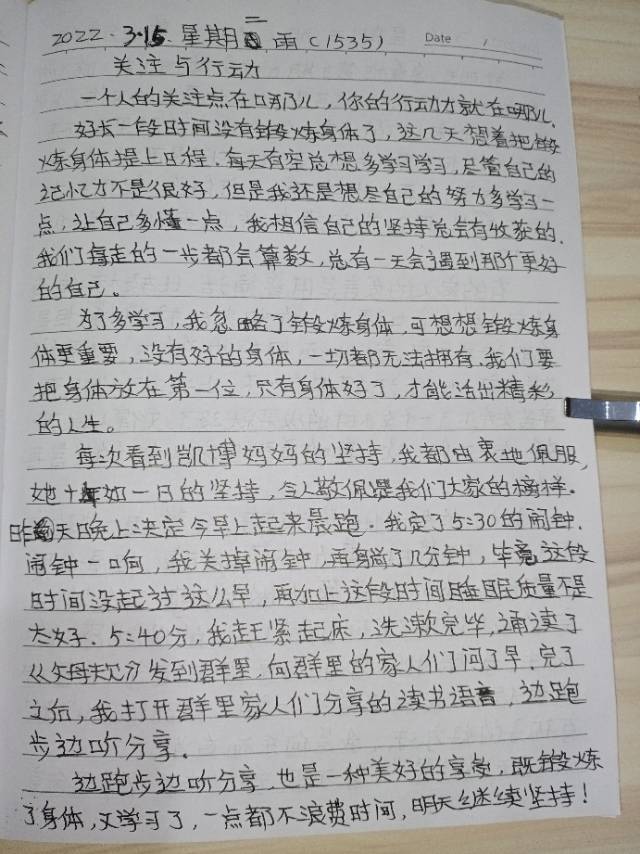 2022.3.15.星期二 雨（1535）
Date /
关注与行动
一个人的关注点在哪儿，你的行动力就在哪儿.
好长一段时间没有锻炼身体了，这几天想着把锻
炼身体提上日程.每天有空总想多学习学习，尽管自己的
记忆力不是很好，但是我还是想尽自己的努力多学习一
点，让自己多懂一点，我相信自己的坚持总会有收获的.
我们每走的一步都会算数，总有一天会遇到那个更好
的自己。
为了多学习，我忽略了锻炼身体，可想想锻炼身
体更重要，没有好的身体，一切都无法拥有.我们要
把身体放在第一位，只有身体好了，才能活出精彩
的人生。
每次看到凯博妈妈的坚持，我都由衷地佩服，
她十年如一日的坚持，令人敬佩是我们大家的榜样.
昨天晚上决定今早上起来晨跑.我定了5:30的闹钟.
闹钟一响，我关掉闹钟，再躺了几分钟，毕竟这段
时间没起过这么早，再加上这段时间睡眠质量不是
太好.5:40分，我赶紧起床，洗漱完毕，诵读了
《父母规》发到群里，向群里的家人们问了早.完了
之后，我打开群里家人们分享的读书语音，边跑
步边听分享.
边跑步边听分享，也是一种美好的享受，既锻炼
了身体，又学习了，一点都不浪费时间，明天继续坚持！